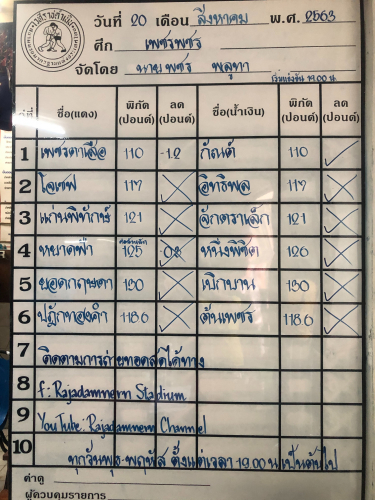 วันที่ 20 เดือน สิงหาคม พ.ศ. 2563
ศึก เพชรพชร
จัดโดย นายพชร พลูทา
เริ่มแข่งขัน 19.00 น.
คู่ที่ ชื่อ(แดง) พิกัด (ปอนด์) ลด (ปอนด์) ชื่อ(น้ำเงิน) พิกัด (ปอนด์) ลด (ปอนด์)
1 เพชรตาเสือ 110 -1.2 กัณต์ 110
2 โอเซฟ 117 อิทธิพล 117
3 แก่นพิทักษ์ 121 จักตราเล็ก 121
4 หยาดฟ้า 125 หนึ่งพิชิต 126
5 ยอดกฤษดา 130 เบิกบาน 130
6 ปฏักทองคำ 118.6 ต้นเพชร 118.6
7 ติดตามการถ่ายทอดสดได้ทาง
8 f: Rajadamnern Stadium
9 YouTube: Rajadamnern Channel
10 ทุกวันพุธ-พฤหัส ตั้งแต่เวลา 19.00 น เป็นต้นไป
ค่าดู
ผู้ควบคุมรายการ